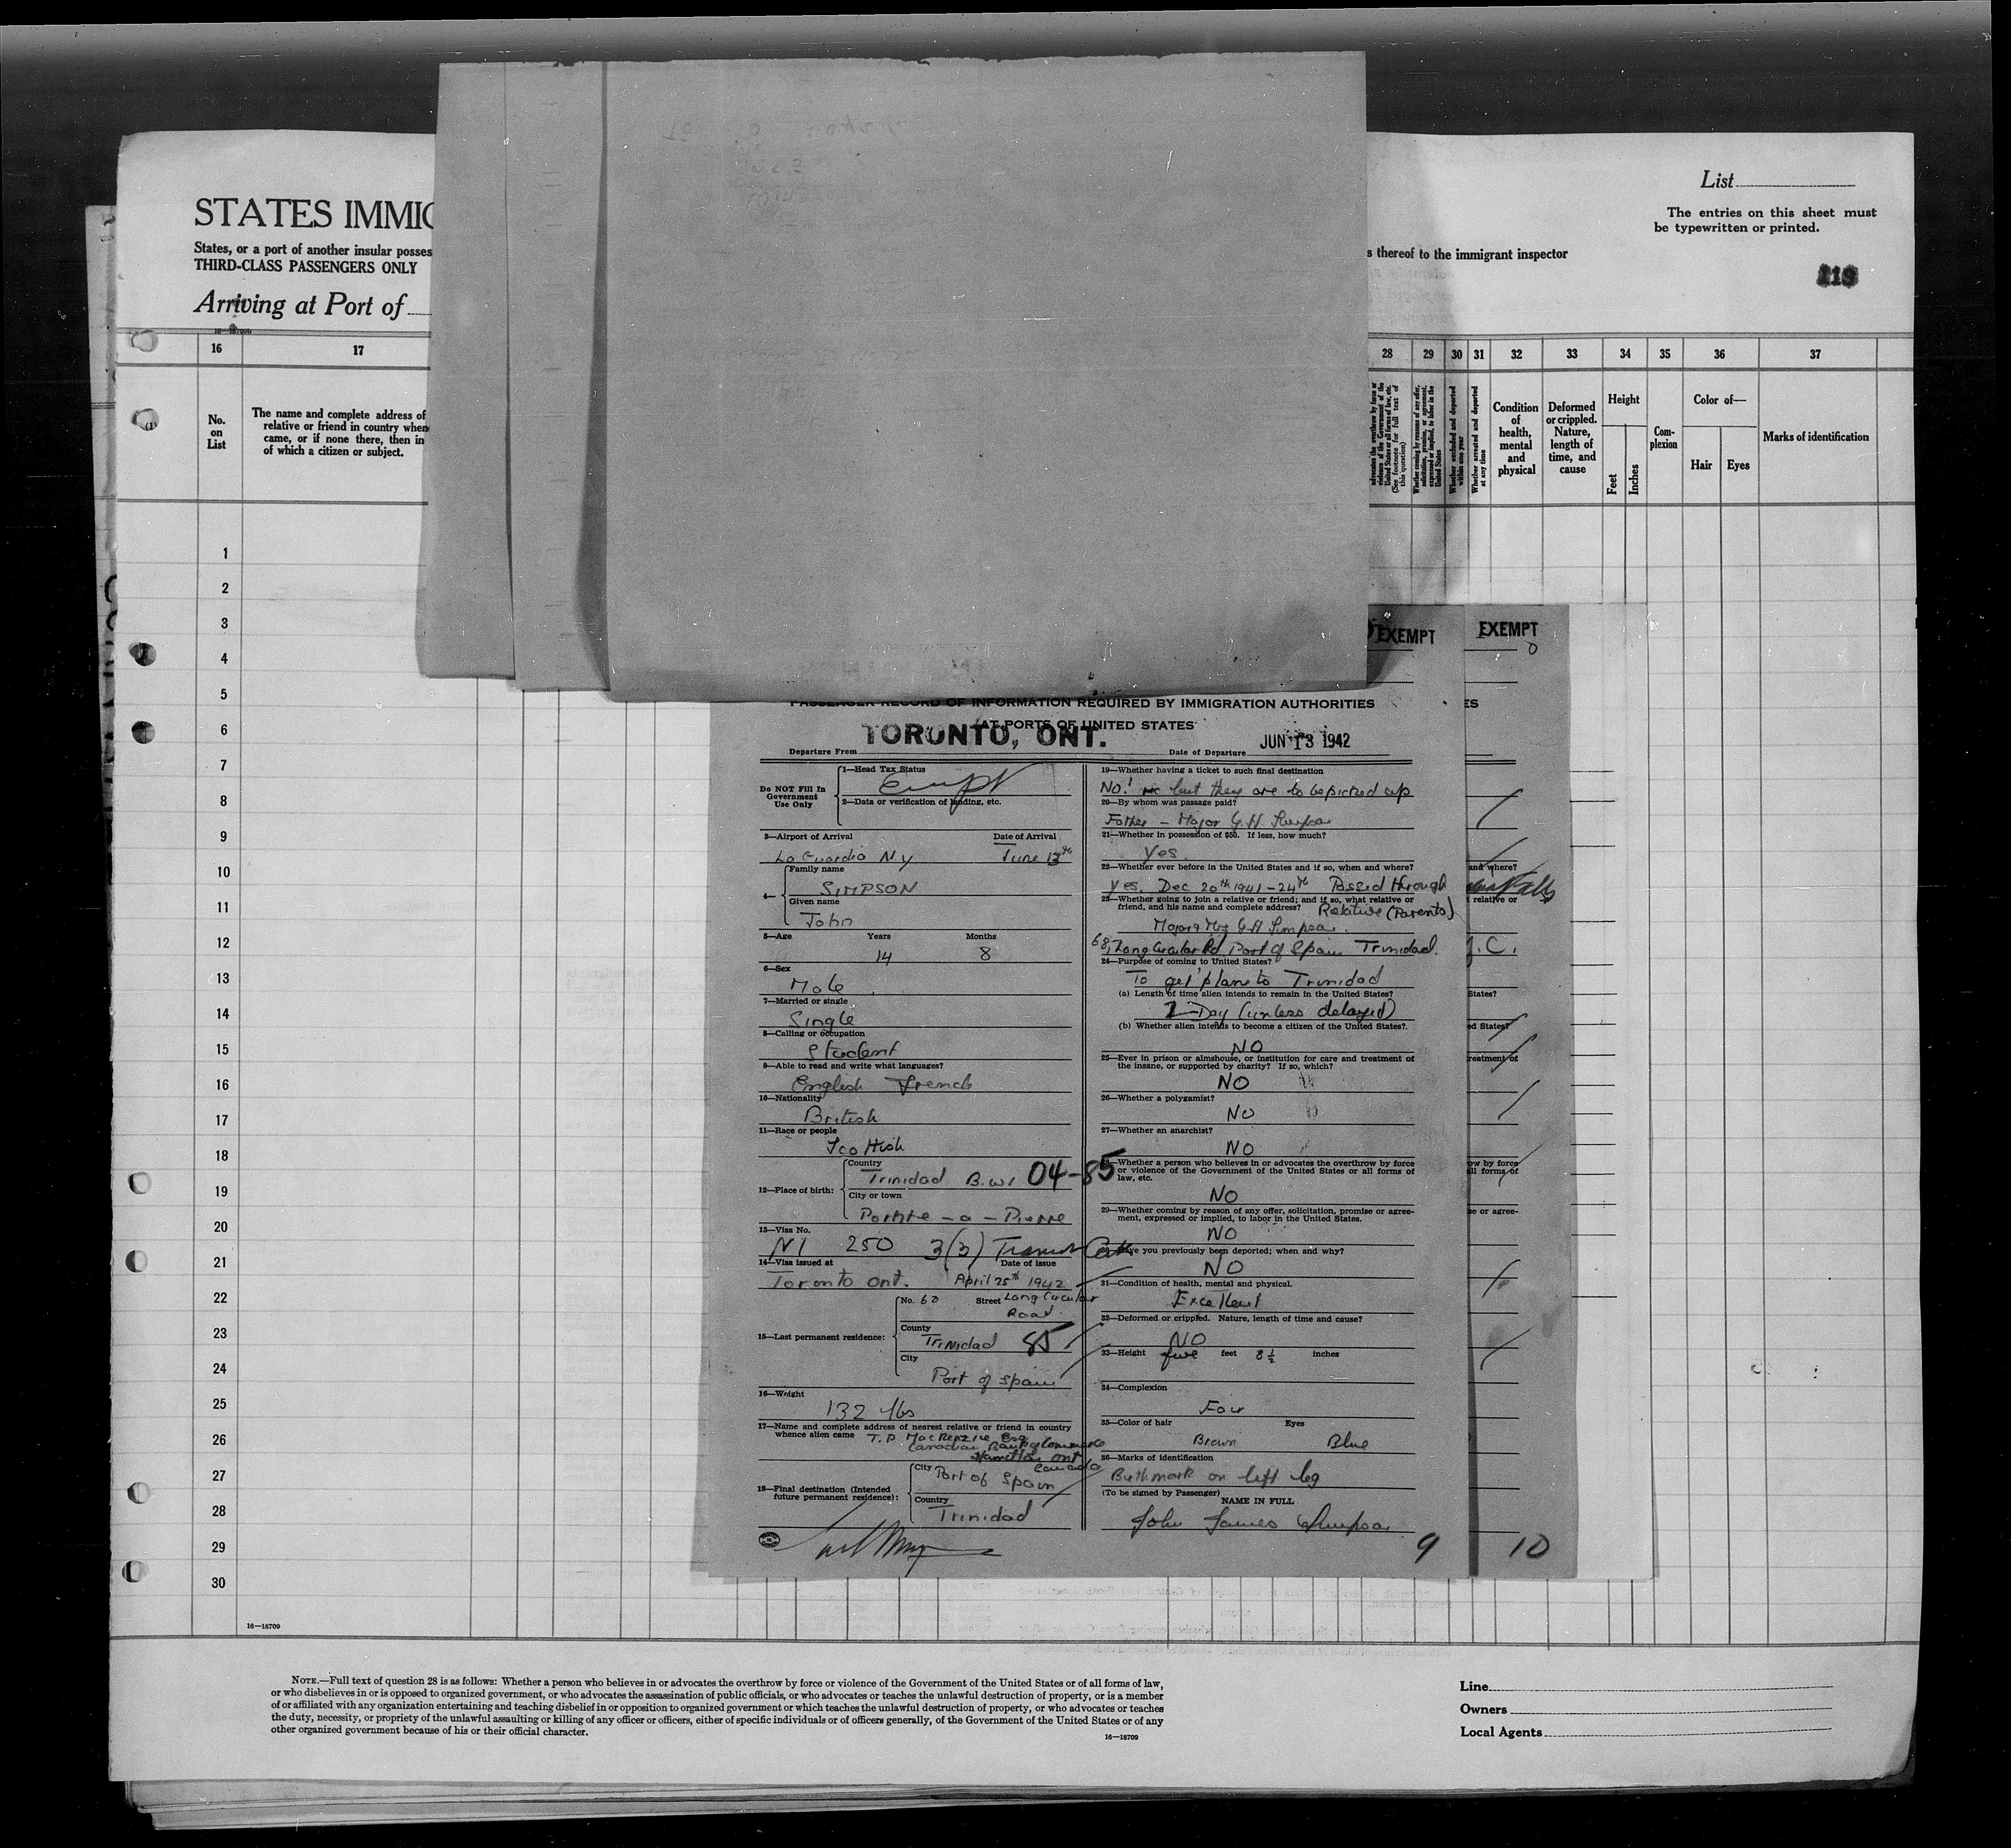 STATES IMMIG
States, or a port of another insular posses
THIRD-CLASS PASSENGERS ONLY
Arriving at Port of
List
The entries on this sheet must
be typewritten or printed.
s thereof to the immigrant inspector
16 17 28 29 30 31 32 33 34 35 36 37
No.
on
List
The name and complete address of
relative or friend in country when
came, or if none there, then in
of which a citizen or subject.
Whether excluded and deported
within one year
Whether arrested and deported
at any time
Condition
of
health,
mental
and
physical
Deformed
or crippled.
Nature,
length of
time, and
cause
Height
Feet
Inches
Com-
plexion
Color of—
Hair Eyes
Marks of identification
1
2
3
4
5
6
7
8
9
10
11
12
13
14
15
16
17
18
19
20
21
22
23
24
25
26
27
28
29
30
EXEMPT
EXEMPT
PASSENGER RECORD OF INFORMATION REQUIRED BY IMMIGRATION AUTHORITIES
AT PORTS OF UNITED STATES
TORONTO, ONT.
Departure From
Date of Departure JUN 13 1942
Do NOT Fill In
Government
Use Only
1—Head Tax Status
Exempt
2—Data or verification of landing, etc.
3—Airport of Arrival Date of Arrival
La Guardia N.Y June 13th
4—
Family name
SIMPSON
Given name
John
5—Age Years Months
14 8
6—Sex
Male
7—Married or single
Single
8—Calling or occupation
Student
9—Able to read and write what languages?
English French
10—Nationality
British
11—Race or people
Scottish
12—Place of birth:
Country
Trinidad B.W.I 04-85
City or town
Pointe - a - Pierre
13—Visa No.
N1 250 3(3) Transit Cert
14—Visa issued at Date of issue
Toronto Ont. April 25th 1942
15—Last permanent residence:
No. 68 Street Long Circular
Road
County
Trinidad 85
City
Port of Spain
16—Weight
132 lbs
17—Name and complete address of nearest relative or friend in country
whence alien came T.P MacKenzie Esq
Canadian Bank of Commerce
Hamilton Ont
Canada
18—Final destination (Intended
future permanent residence):
City Port of Spain
Country
Trinidad
19—Whether having a ticket to such final destination
NO! but they are to be picked up
20—By whom was passage paid?
Father - Major G.H Simpson
21—Whether in possession of $50. If less, how much?
Yes
22—Whether ever before in the United States and if so, when and where?
Yes. Dec 20th 1941 - 24th Passed through
23—Whether going to join a relative or friend; and if so, what relative or
friend, and his name and complete address? Relative (Parents)
Major & Mrs G.H Simpson.
68, Long Circular Rd Port of Spain Trinidad.
24—Purpose of coming to United States?
To get plane to Trinidad
(a) Length of time alien intends to remain in the United States?
1 Day (unless delayed)
(b) Whether alien intends to become a citizen of the United States?
NO
25—Ever in prison or almshouse, or institution for care and treatment of
the insane, or supported by charity? If so, which?
NO
26—Whether a polygamist?
NO
27—Whether an anarchist?
NO
28—Whether a person who believes in or advocates the overthrow by force
or violence of the Government of the United States or all forms of
law, etc.
NO
29—Whether coming by reason of any offer, solicitation, promise or agree-
ment, expressed or implied, to labor in the United States.
NO
30—Have you previously been deported; when and why?
NO
31—Condition of health, mental and physical.
Excellent
32—Deformed or crippled. Nature, length of time and cause?
NO
33—Height five feet 8 1/2 inches
34—Complexion
Fair
35—Color of hair Eyes
Brown Blue
36—Marks of identification
Birthmark on left leg
(To be signed by Passenger)
NAME IN FULL
John James Simpson
9
10
ES
and where?
Falls
t relative or
J.C.
States?
ed States?
treatment of
ow by force
all forms of
se or agree-
16—18709
NOTE.—Full text of question 28 is as follows: Whether a person who believes in or advocates the overthrow by force or violence of the Government of the United States or of all forms of law,
or who disbelieves in or is opposed to organized government, or who advocates the assassination of public officials, or who advocates or teaches the unlawful destruction of property, or is a member
of or affiliated with any organization entertaining and teaching disbelief in or opposition to organized government or which teaches the unlawful destruction of property, or who advocates or teaches
the duty, necessity, or propriety of the unlawful assaulting or killing of any officer or officers, either of specific individuals or of officers generally, of the Government of the United States or of any
other organized government because of his or their official character.
16—18709
Line
Owners
Local Agents